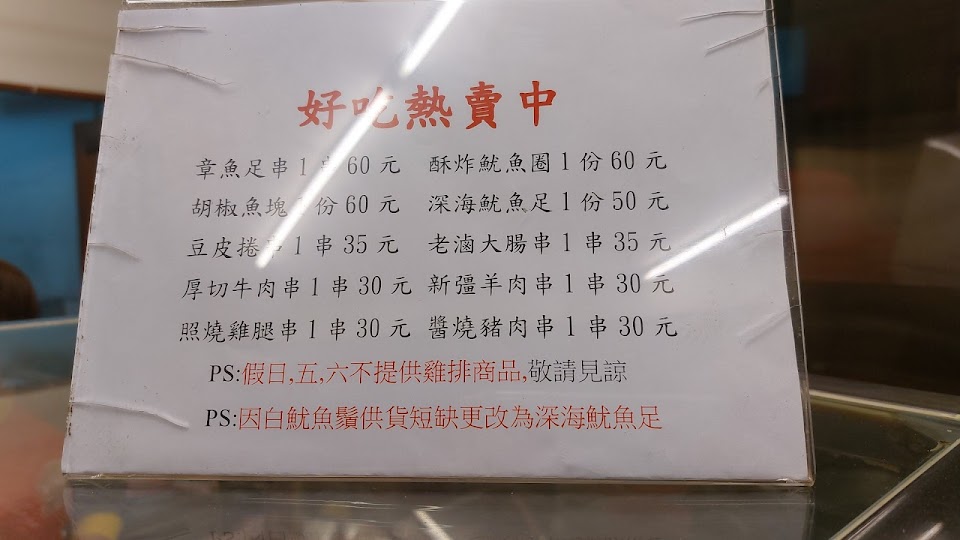 好吃熱賣中
章魚足串1串60元 酥炸魷魚圈1份60元
胡椒魚塊 份60元 深海魷魚足1份50元
豆皮捲串1串35元 老滷大腸串1串35元
厚切牛肉串1串30元 新彊羊肉串1串30元
照燒雞腿串1串30元 醬燒豬肉串1串30元
PS:假日,五,六不提供雞排商品,敬請見諒
PS:因白魷魚鬚供貨短缺更改為深海魷魚足